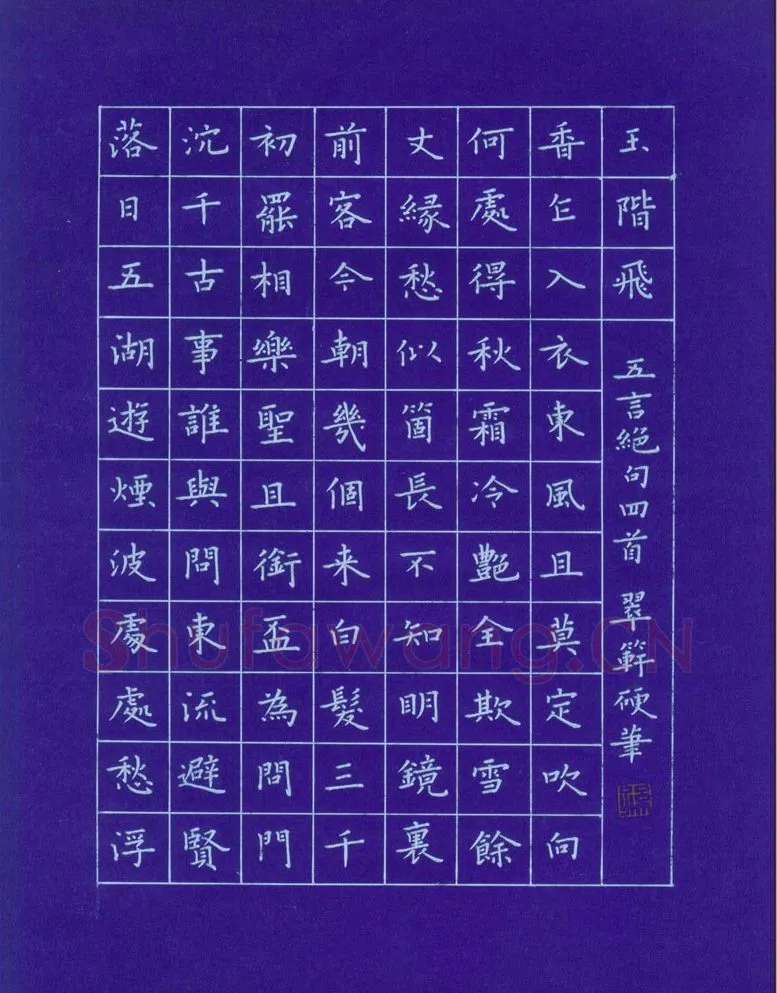 落日五湖遊煙波處處愁浮
沉千古事誰與問東流避賢
初罷相樂聖且銜盃為問門
前客今朝幾個来白髮三千
丈縁愁似箇長不知明鏡裏
何處得秋霜冷艷全欺雪餘
香乍入衣東風且莫定吹向
玉階飛
五言絕句四首 翠硬筆
Shufawang.CN